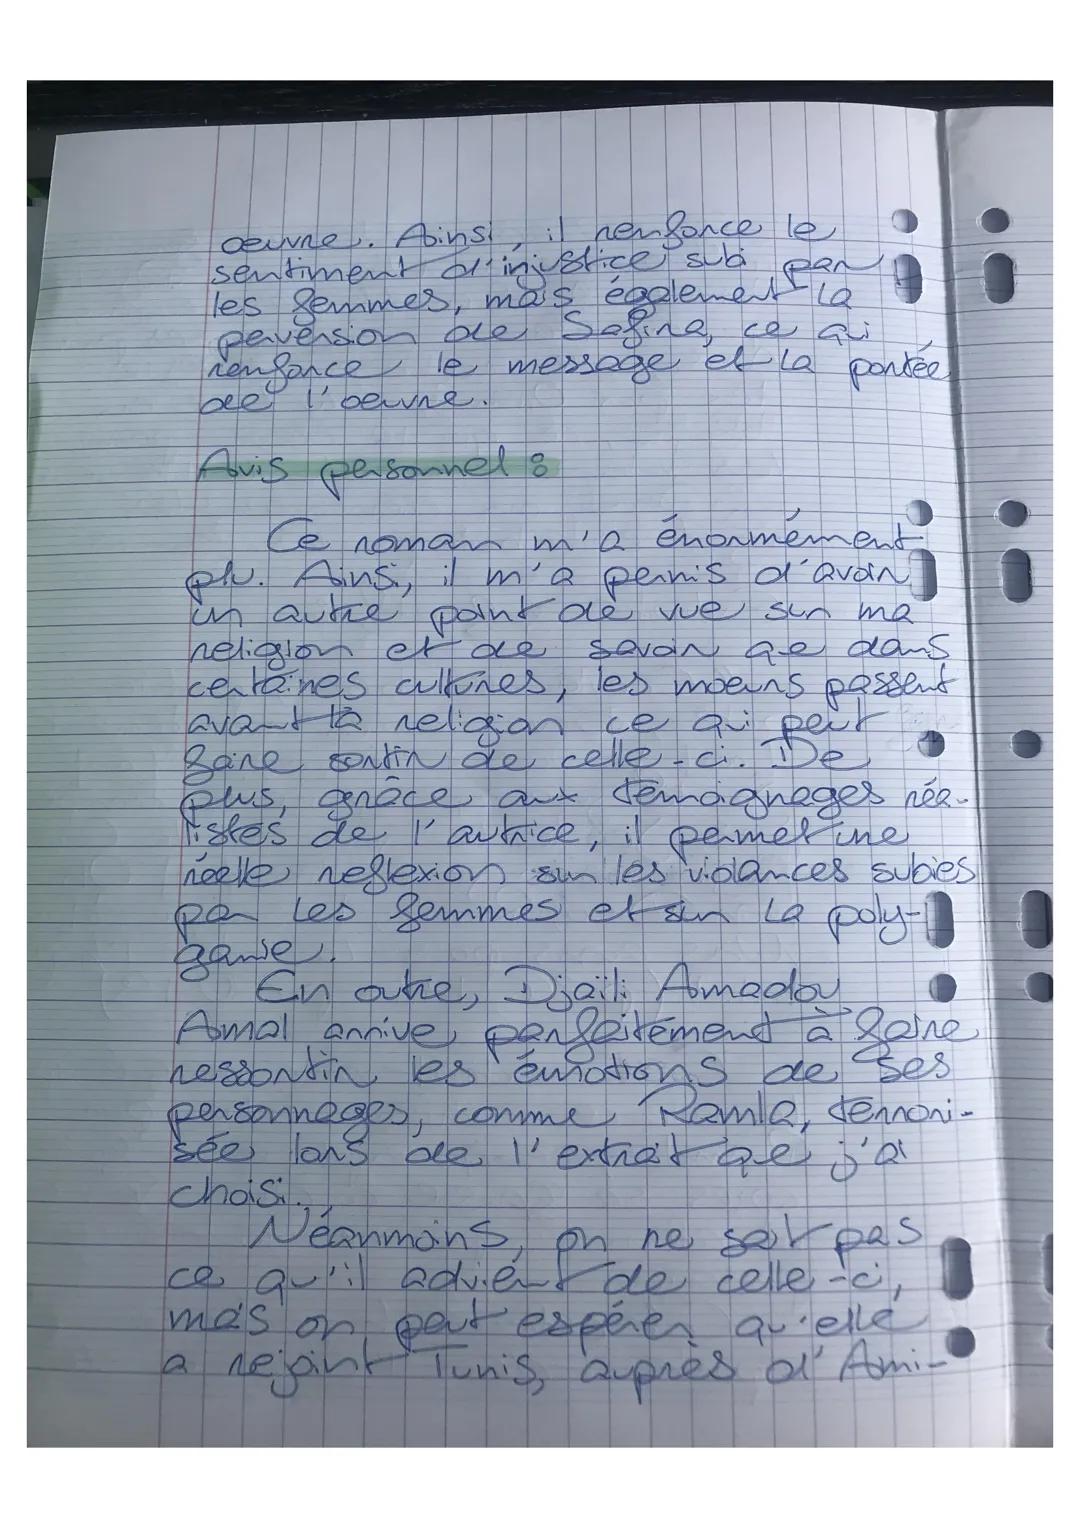 oeuvre. Ainsi, il renforce le
sentiment d'injustice subi par
les femmes, mais également la
perversion de Safira, ce qui
renforce le message et la portée
de l'oeuvre.
Avis personnel :
Ce roman m'a énormément
plu. Ainsi, il m'a permis d'avoir
un autre point de vue sur ma
religion et de savoir que dans
certaines cultures, les moeurs passent
avant la religion ce qui peut
faire sortir de celle-ci. De
plus, grâce aux témoignages réa-
listes de l'autrice, il permet une
réelle reflexion sur les violances subies
par les femmes et sur la poly-
gamie.
En outre, Djaïli Amadou
Amal arrive parfaitement à faire
ressortir les émotions de ses
personnages, comme Ramla, terrori-
sée lors de l'extrait que j'ai
choisi.
Néanmoins, on ne sait pas
ce qu'il advient de celle-ci,
mais on peut espérer qu'elle
a rejoint Tunis, auprès d'Ami-